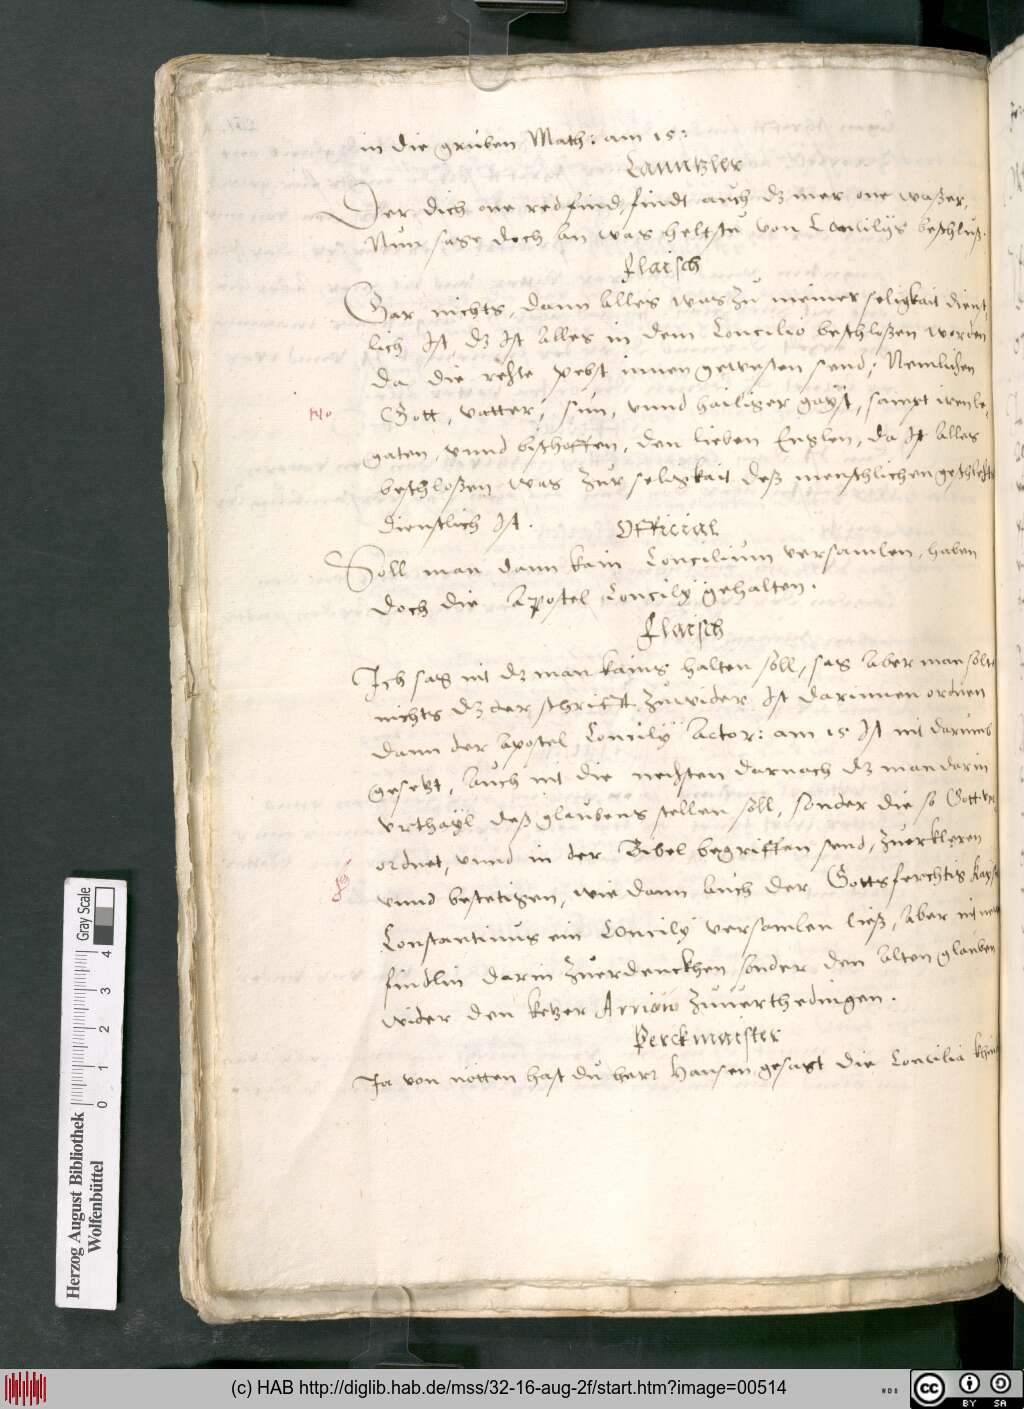 in die gruben Math: am 15:
Canntzler
Der dich one red find, findt auch dz mer one waßer,
Nun sage doch an was heltstu von Concilijs beschluß.
flaisch
Gar nichts, dann alles was zu meiner seligkait dienst
lich ist, dz ist alles in dem Concilio beschloßen worden
da die rechte pebst innen gewesten send, Nemlichen
No
Gott, vatter, sun, vnnd hailiger gayst, sampt iren le,
gaten, vnnd bischoffen, den lieben Englen, da ist alles
beschloßen was zur seligkait deß menschlichen geschlechts
dienstlich ist.
Official
Soll man dann kain Concilium versamlen, haben
doch die Apostel Concily gehalten.
flaisch
Ich sag nit dz man kains halten söll, sag aber man sölt
nichts dz der schrifft zuwider ist darinnen ordnen
dann der Apostel Concily Actor: am 15 ist nit darumb
gesetzt, auch nit die nechsten darnach dz man darin
vrthayl deß glaubens stellen söll, sonder die so Gott ver
ordnet, vnnd in der Bibel begriffen send, zuerkleren
vnnd bestetigen, wie dann auch der Gottsferchtig Kayser
Constantinus ein Concily versamlen ließ, aber nit new
findlin darin zuerdenckhen sonder den alten glauben
wider den ketzer Arriow zuuerthedingen.
Perckmaister
Ja von nötten hast du herr Hansen gesagt die Concilia
Herzog August Bibliothek
Wolfenbüttel
Gray Scale
0 1 2 3 4
(c) HAB http://diglib.hab.de/mss/32-16-aug-2f/start.htm?image=00514
WDB
cc BY SA